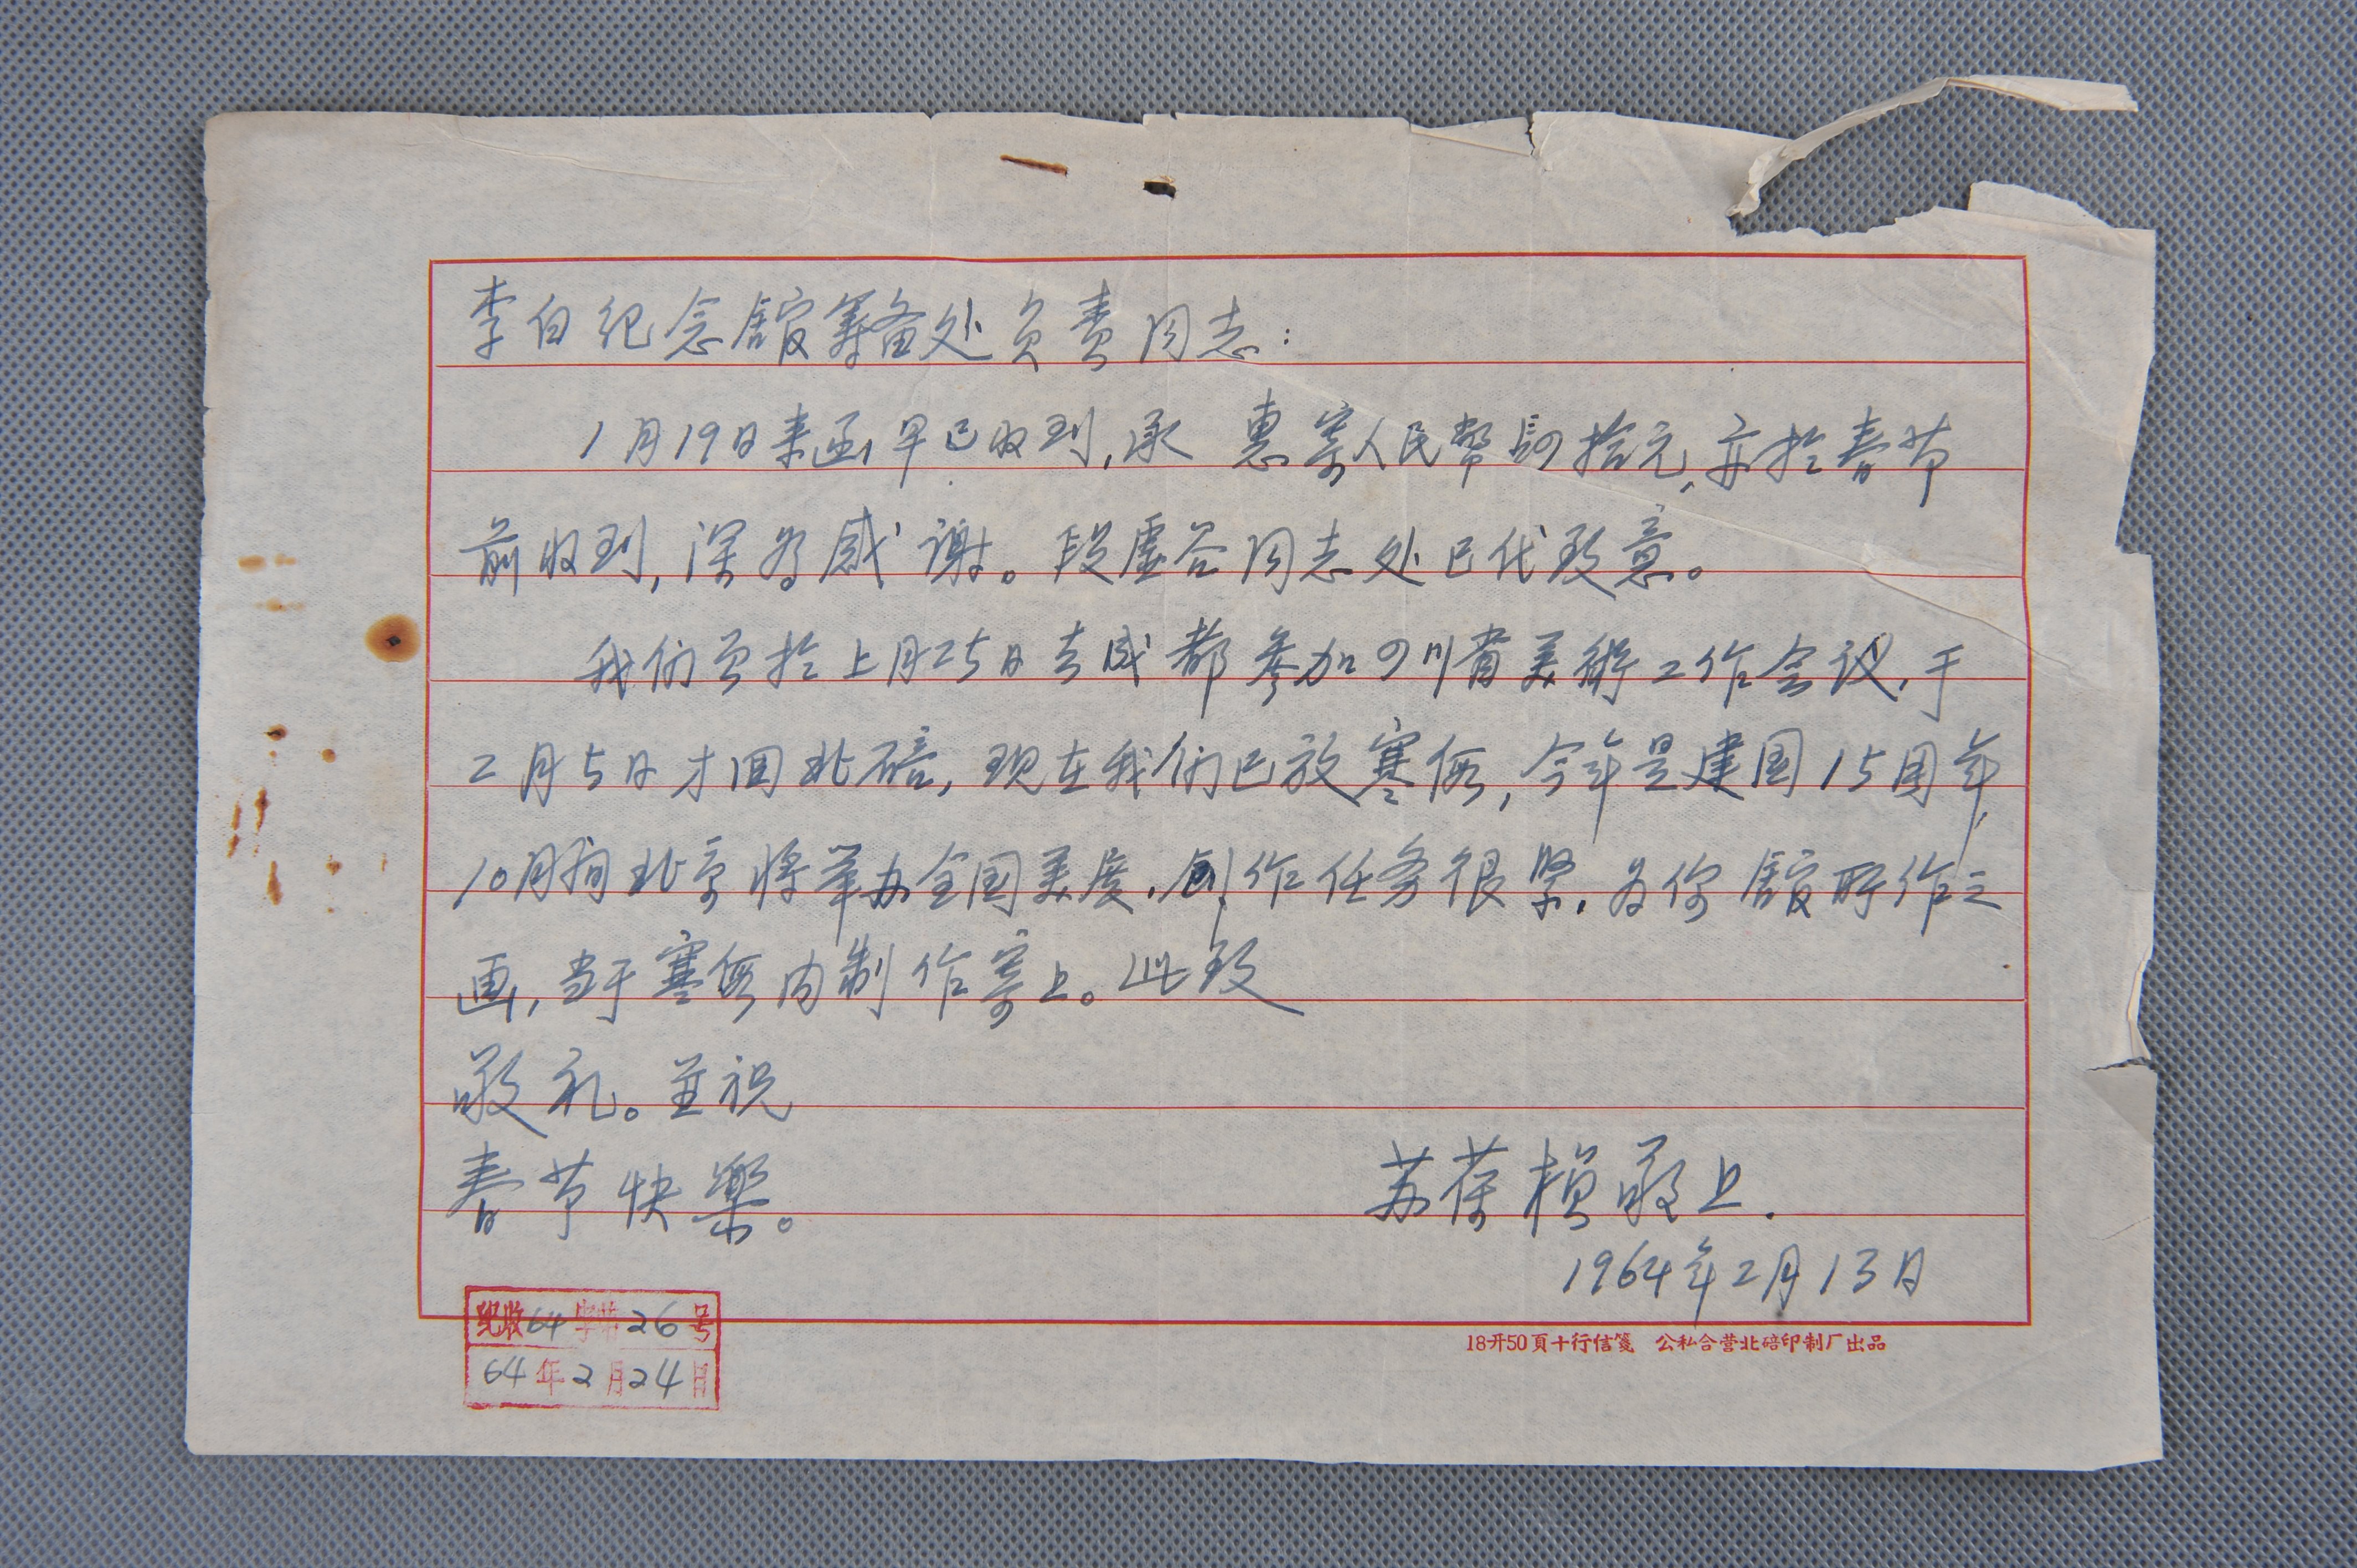 李白纪念館筹备处负责同志：
1月19日来函早已收到，承 惠寄人民幣 拾元，亦於春节
前收到，深为感谢。段虚谷同志处已代致意。
我们 於上月25日去成都参加四川省美術工作会议，于
2月5日才回北碚，现在我们已放寒假，今年是建国15周年，
10月间北京将举办全国美展，创作任务很紧，为你館所作之
画，当于寒假内制作寄上。此致
敬礼。並祝
春节快樂。
苏葆桢敬上．
1964年2月13日
紀收64字第26号
64年2月24日
18开50頁十行信箋 公私合营北碚印制厂出品